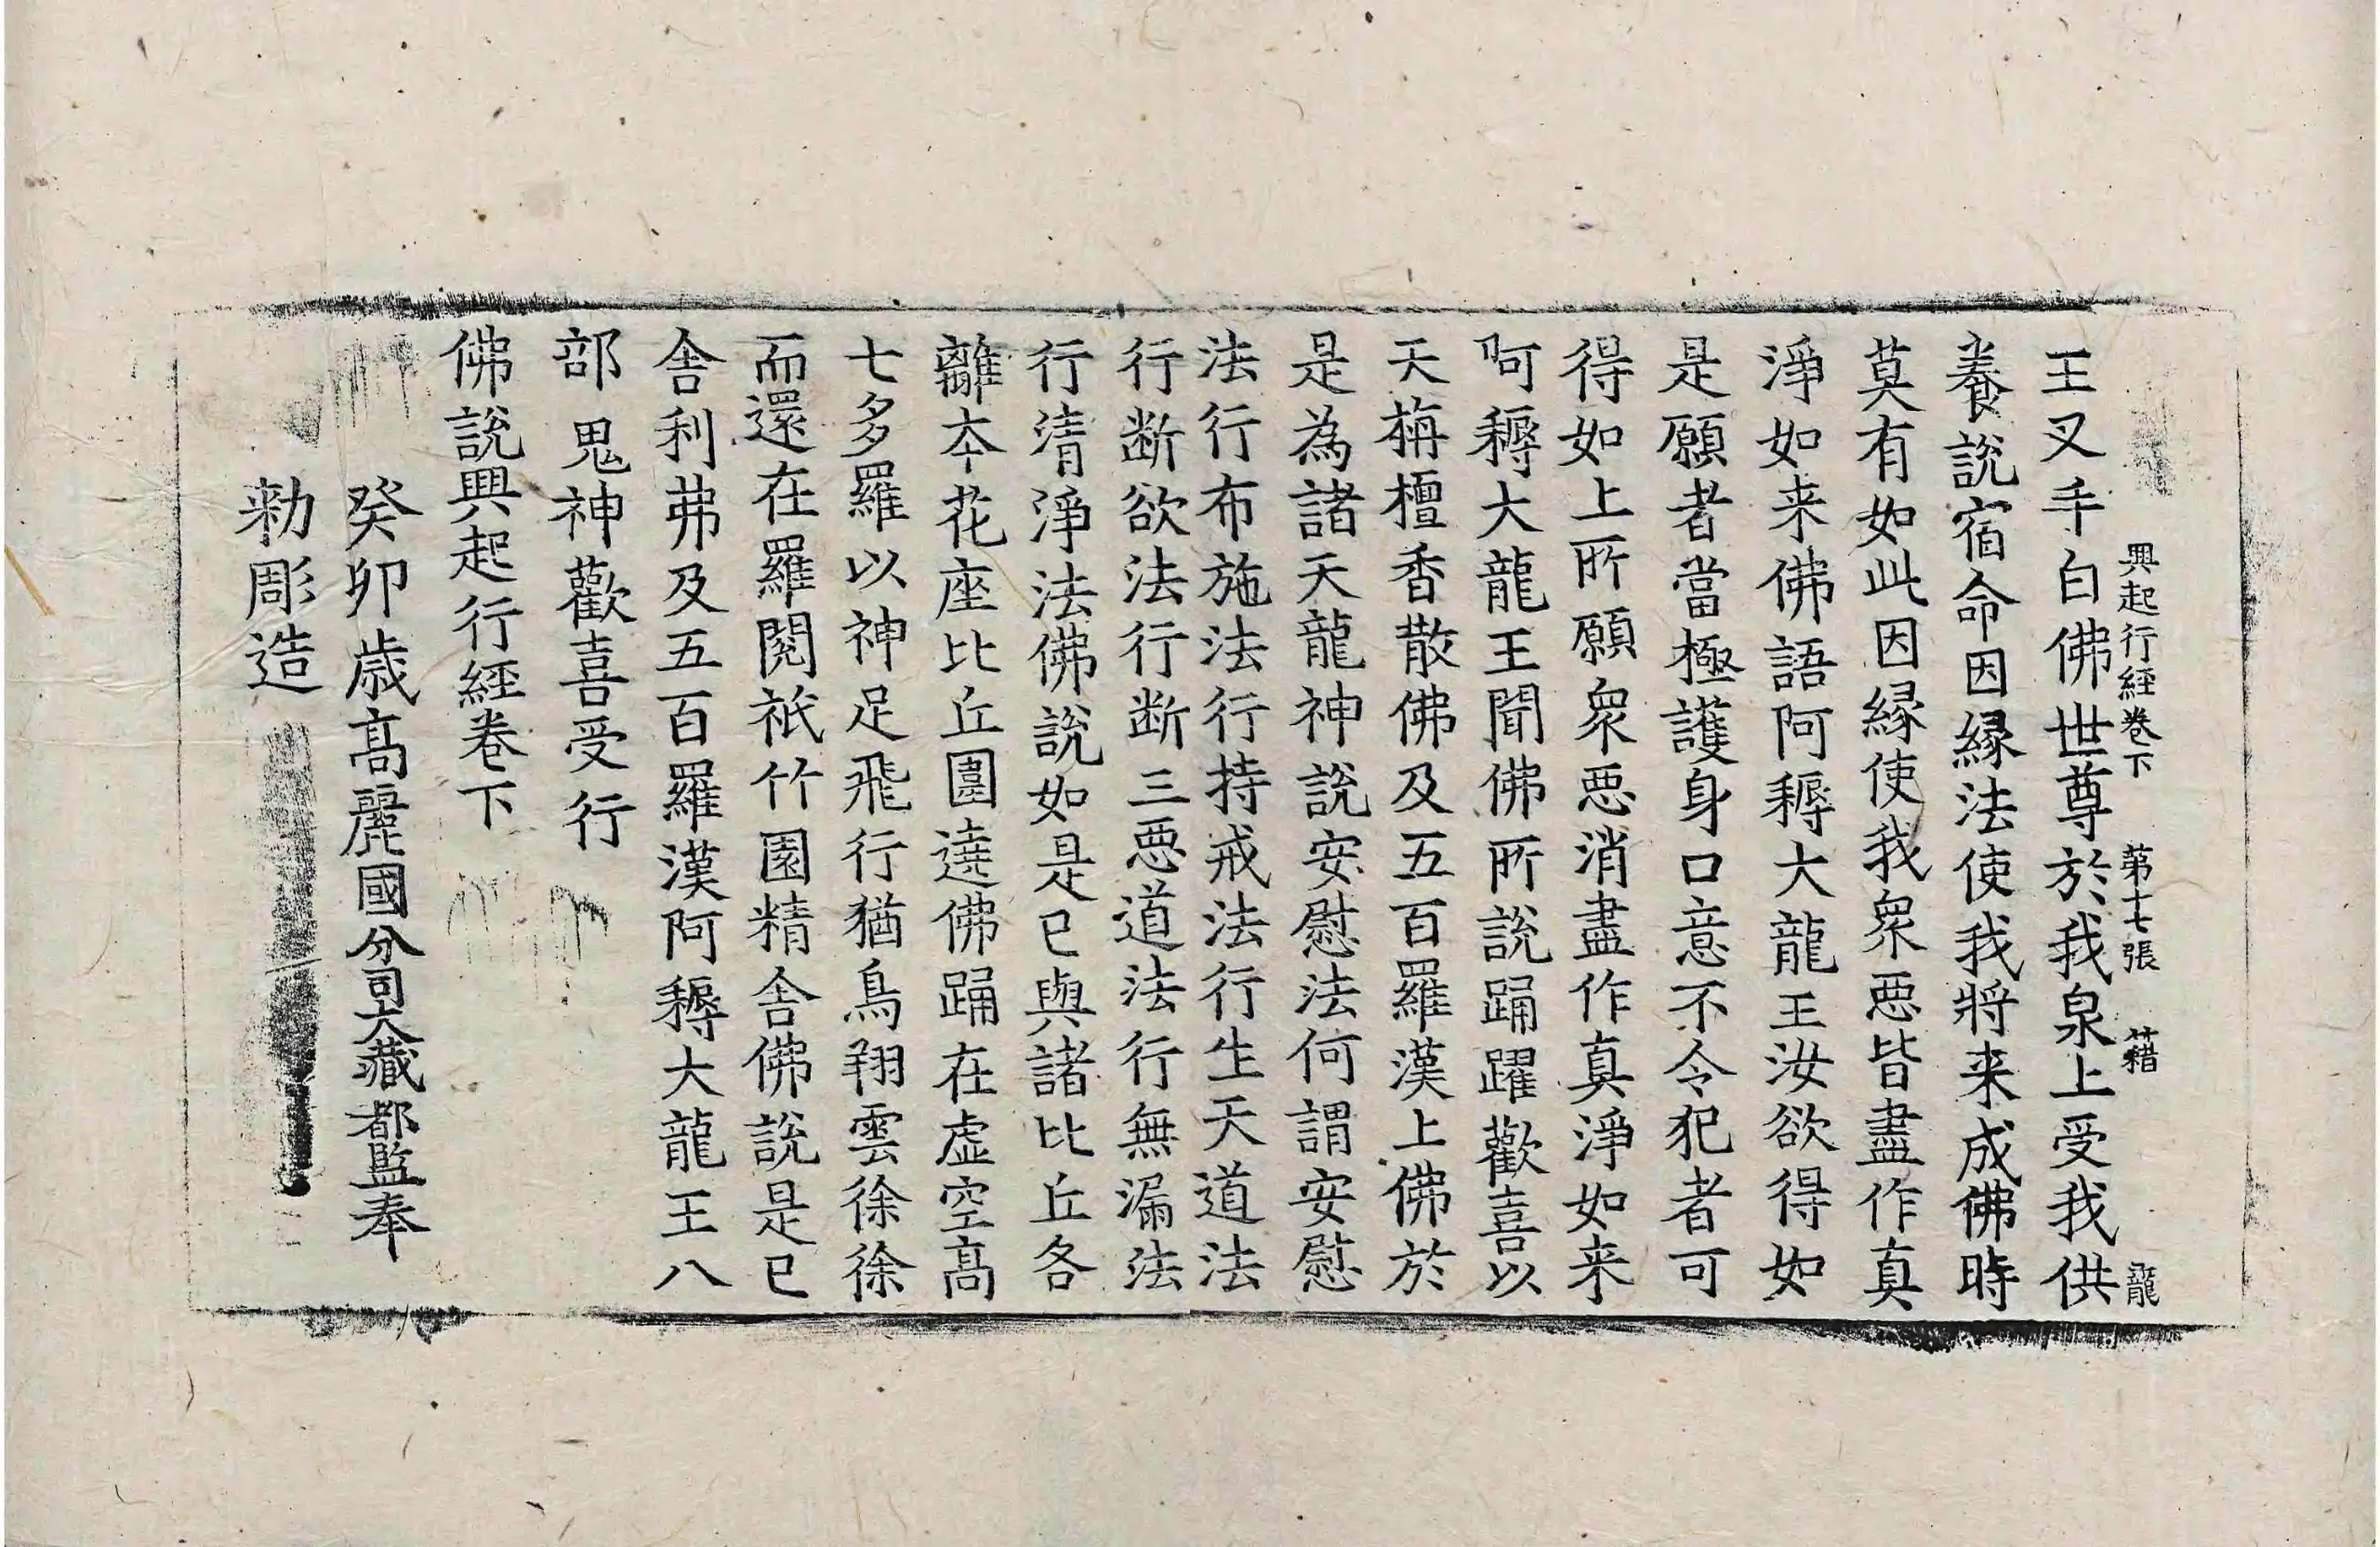 興起行経卷下 第十七張 籍 龍
王叉手白佛世尊於我泉上受我供
養說宿命因縁法使我將来成佛時
莫有如此因縁使我衆惡皆盡作真
淨如来佛語阿耨大龍王汝欲得如
是願者當極護身口意不令犯者可
得如上所願衆惡消盡作真淨如来
阿耨大龍王聞佛所說踊躍歡喜以
天栴檀香散佛及五百羅漢上佛於
是為諸天龍神說安慰法何謂安慰
法行布施法行持戒法行生天道法
行断欲法行断三惡道法行無漏法
行清淨法佛說如是已與諸比丘各
離本花座比丘圍遶佛踊在虛空高
七多羅以神足飛行猶鳥翔雲徐徐
而還在羅閱祇竹園精舍佛說是已
舍利弗及五百羅漢阿耨大龍王八
部鬼神歡喜受行
佛說興起行経卷下
癸卯歳高麗國分司大藏都監奉
勅彫造